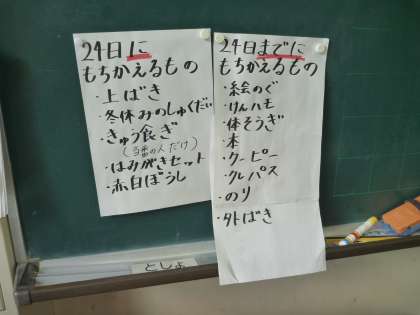 24日に
もちかえるもの
・上ばき
・冬休みのしゅくだい
・きゅう食ぎ
(当番の人だけ)
・はみがきセット
・赤白ぼうし
24日までに
もちかえるもの
・絵のぐ
・けんハモ
・体そうぎ
・本
・クーピー
・クレパス
・のり
・外ばき
としょ